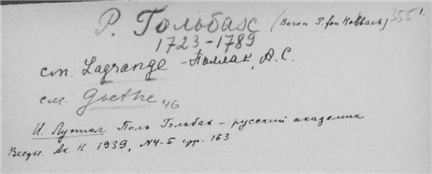 P. Гольбах (Baron P. von Holbach) 355
1723-1789
см. Lagrange - Поллак, А.С.
см. Goethe 46
И. Луппол Поль Гольбах - русский академик
Вестн. Ак Н. 1939, N4-5 стр. 163